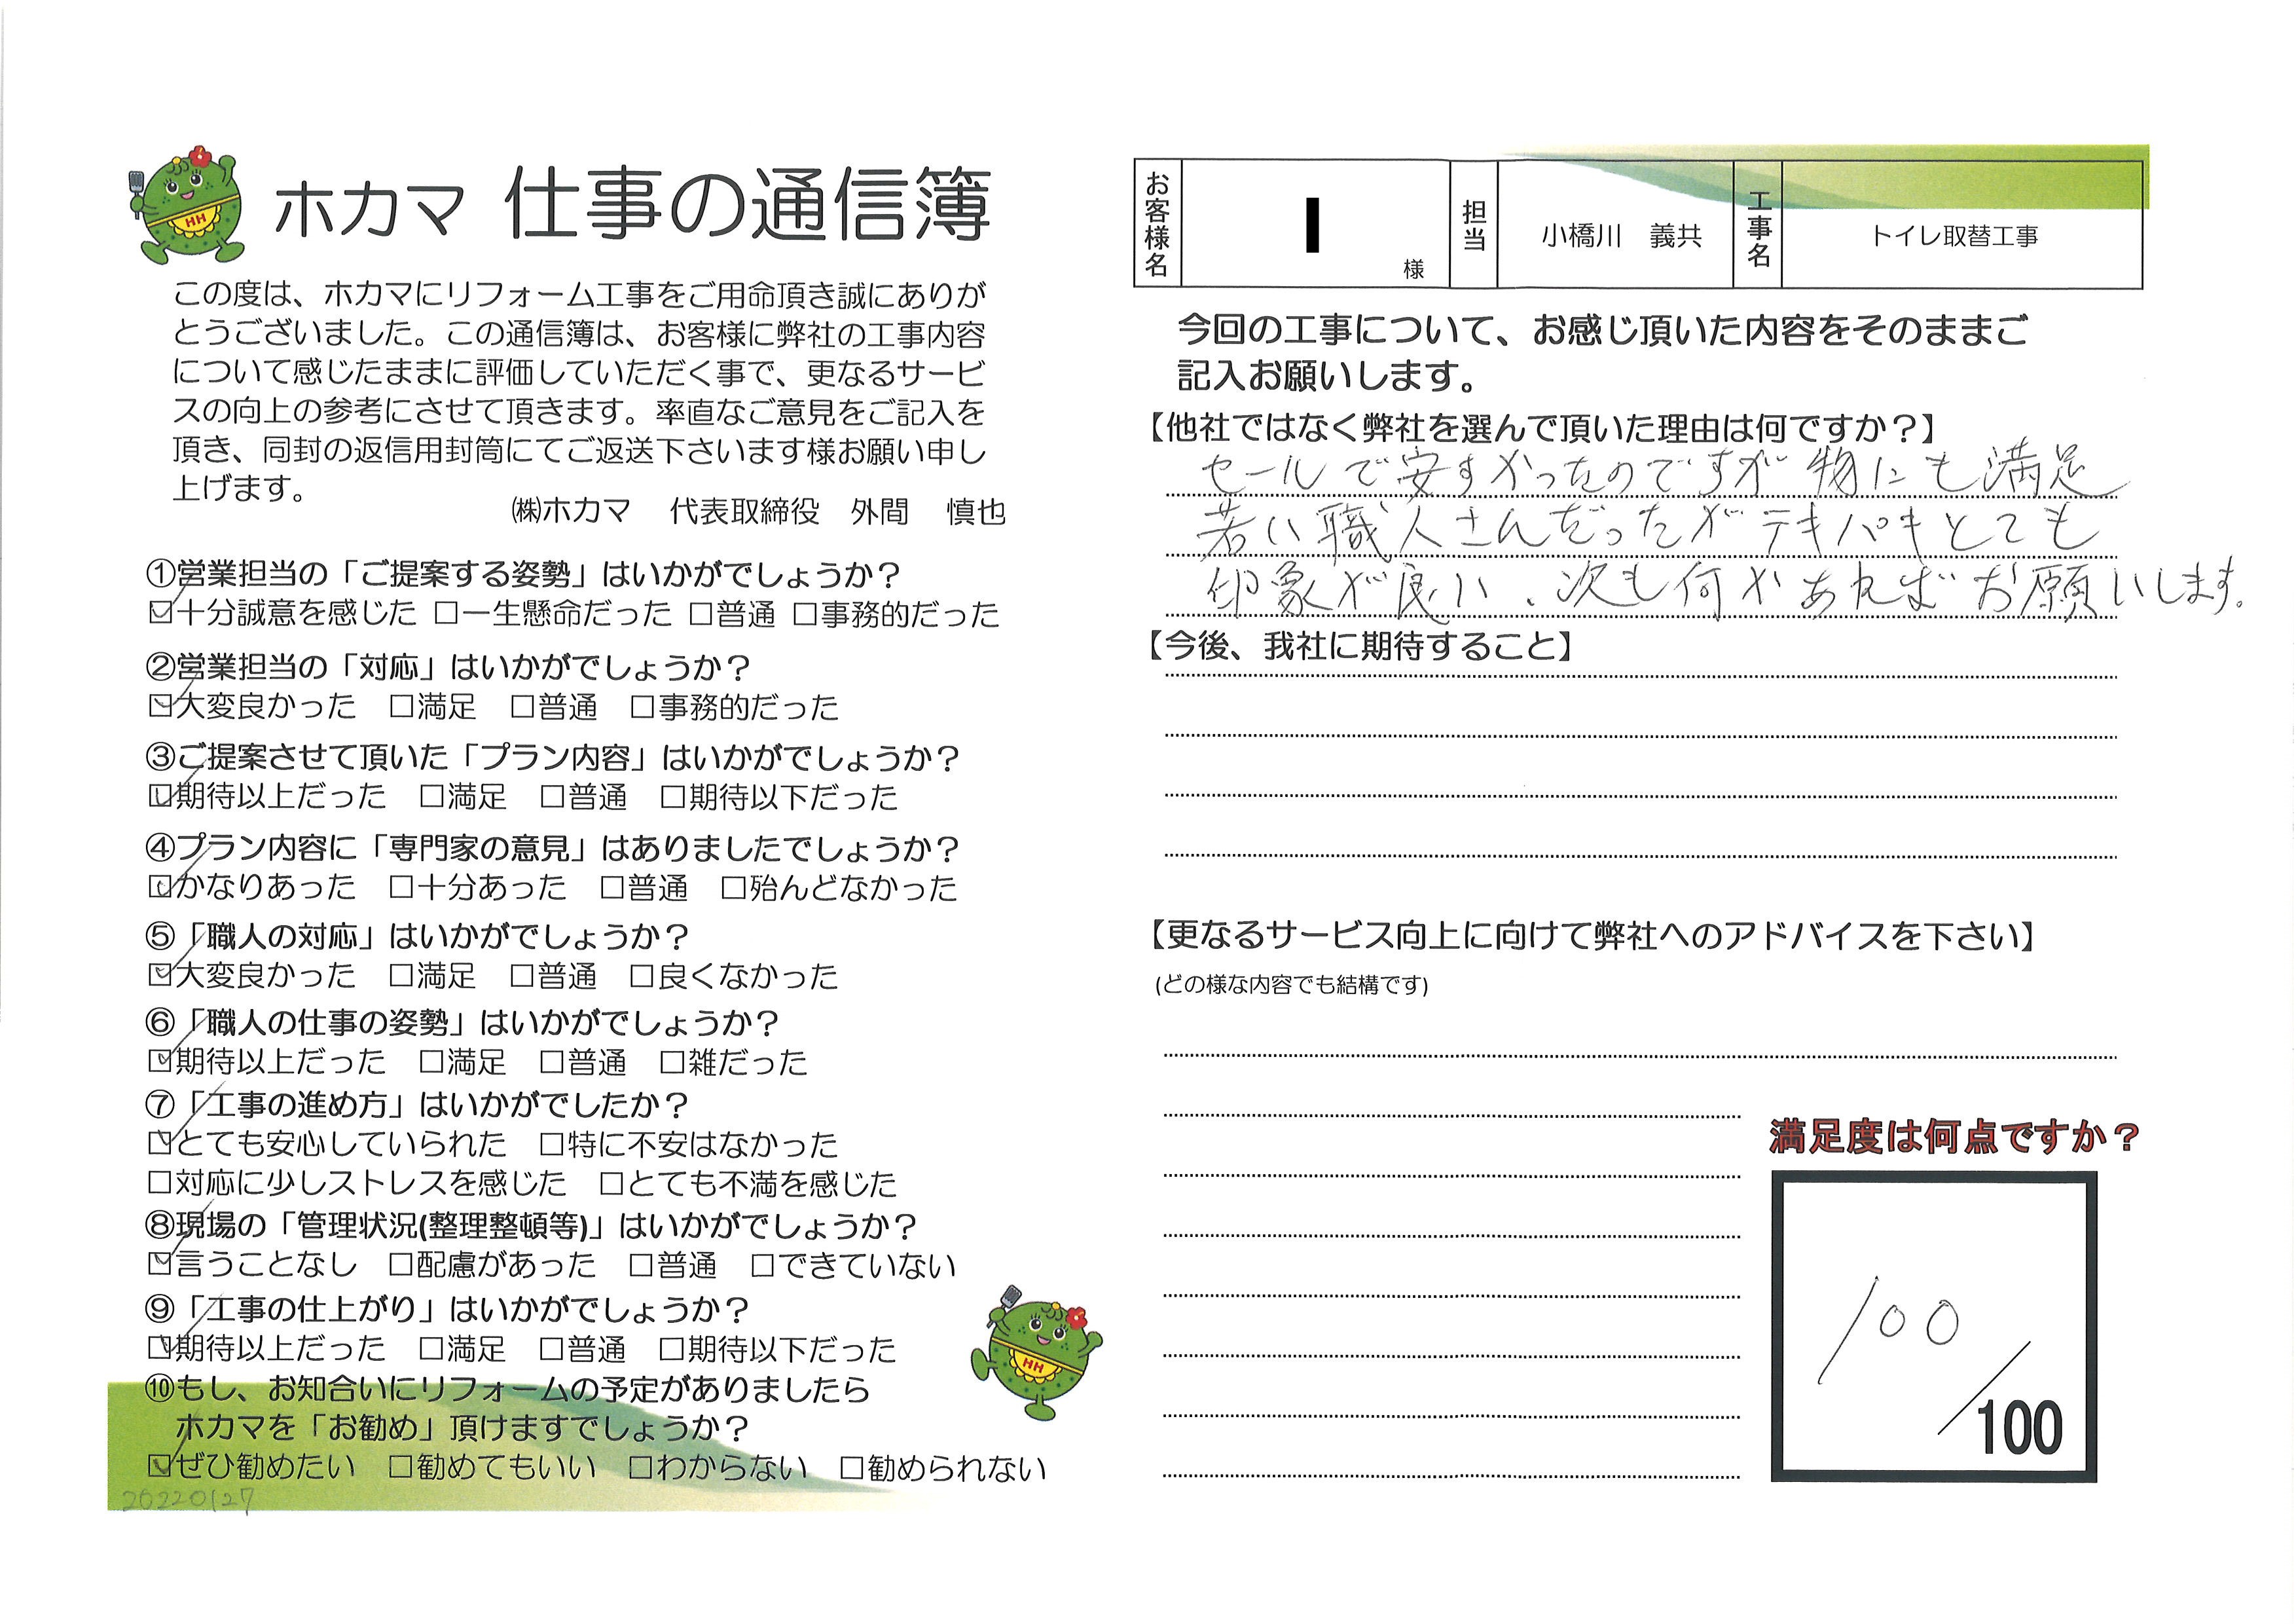 ホカマ 仕事の通信簿
この度は、ホカマにリフォーム工事をご用命頂き誠にありが
とうございました。この通信簿は、お客様に弊社の工事内容
について感じたままに評価していただく事で、更なるサービ
スの向上の参考にさせて頂きます。率直なご意見をご記入を
頂き、同封の返信用封筒にてご返送下さいます様お願い申し
上げます。
㈱ホカマ 代表取締役 外間 慎也
①営業担当の「ご提案する姿勢」はいかがでしょうか？
☑十分誠意を感じた □一生懸命だった □普通 □事務的だった
②営業担当の「対応」はいかがでしょうか？
☑大変良かった □満足 □普通 □事務的だった
③ご提案させて頂いた「プラン内容」はいかがでしょうか？
☑期待以上だった □満足 □普通 □期待以下だった
④プラン内容に「専門家の意見」はありましたでしょうか？
☑かなりあった □十分あった □普通 □殆んどなかった
⑤「職人の対応」はいかがでしょうか？
☑大変良かった □満足 □普通 □良くなかった
⑥「職人の仕事の姿勢」はいかがでしょうか？
☑期待以上だった □満足 □普通 □雑だった
⑦「工事の進め方」はいかがでしたか？
☑とても安心していられた □特に不安はなかった
□対応に少しストレスを感じた □とても不満を感じた
⑧現場の「管理状況(整理整頓等)」はいかがでしょうか？
☑言うことなし □配慮があった □普通 □できていない
⑨「工事の仕上がり」はいかがでしょうか？
☑期待以上だった □満足 □普通 □期待以下だった
⑩もし、お知合いにリフォームの予定がありましたら
ホカマを「お勧め」頂けますでしょうか？
☑ぜひ勧めたい □勧めてもいい □わからない □勧められない
20220127
HH
HH
お客様名 I 様 担当 小橋川 義共 工事名 トイレ取替工事
今回の工事について、お感じ頂いた内容をそのままご
記入お願いします。
【他社ではなく弊社を選んで頂いた理由は何ですか？】
セールで安すかったのですが物にも満足
若い職人さんだったがテキパキとても
印象が良い、次も何かあればお願いします。
【今後、我社に期待すること】
【更なるサービス向上に向けて弊社へのアドバイスを下さい】
(どの様な内容でも結構です)
満足度は何点ですか？
100
/100